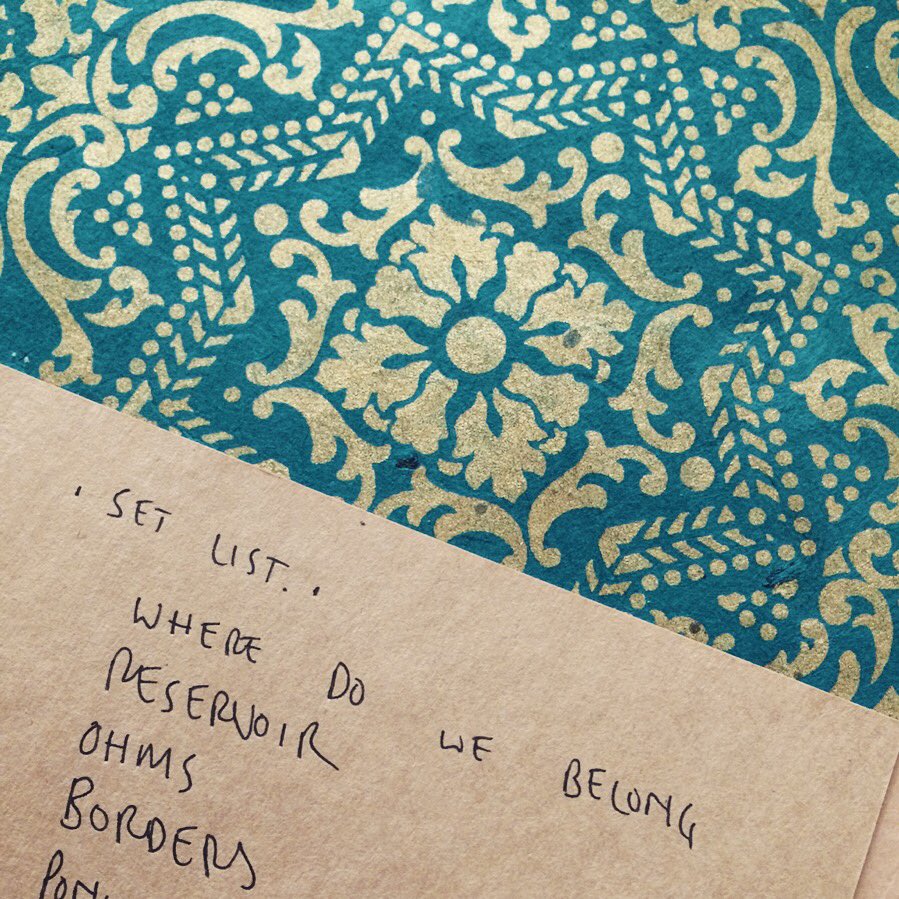 ' SET LIST. '
WHERE DO WE BELONG
RESERVOIR
OHMS
BORDERS